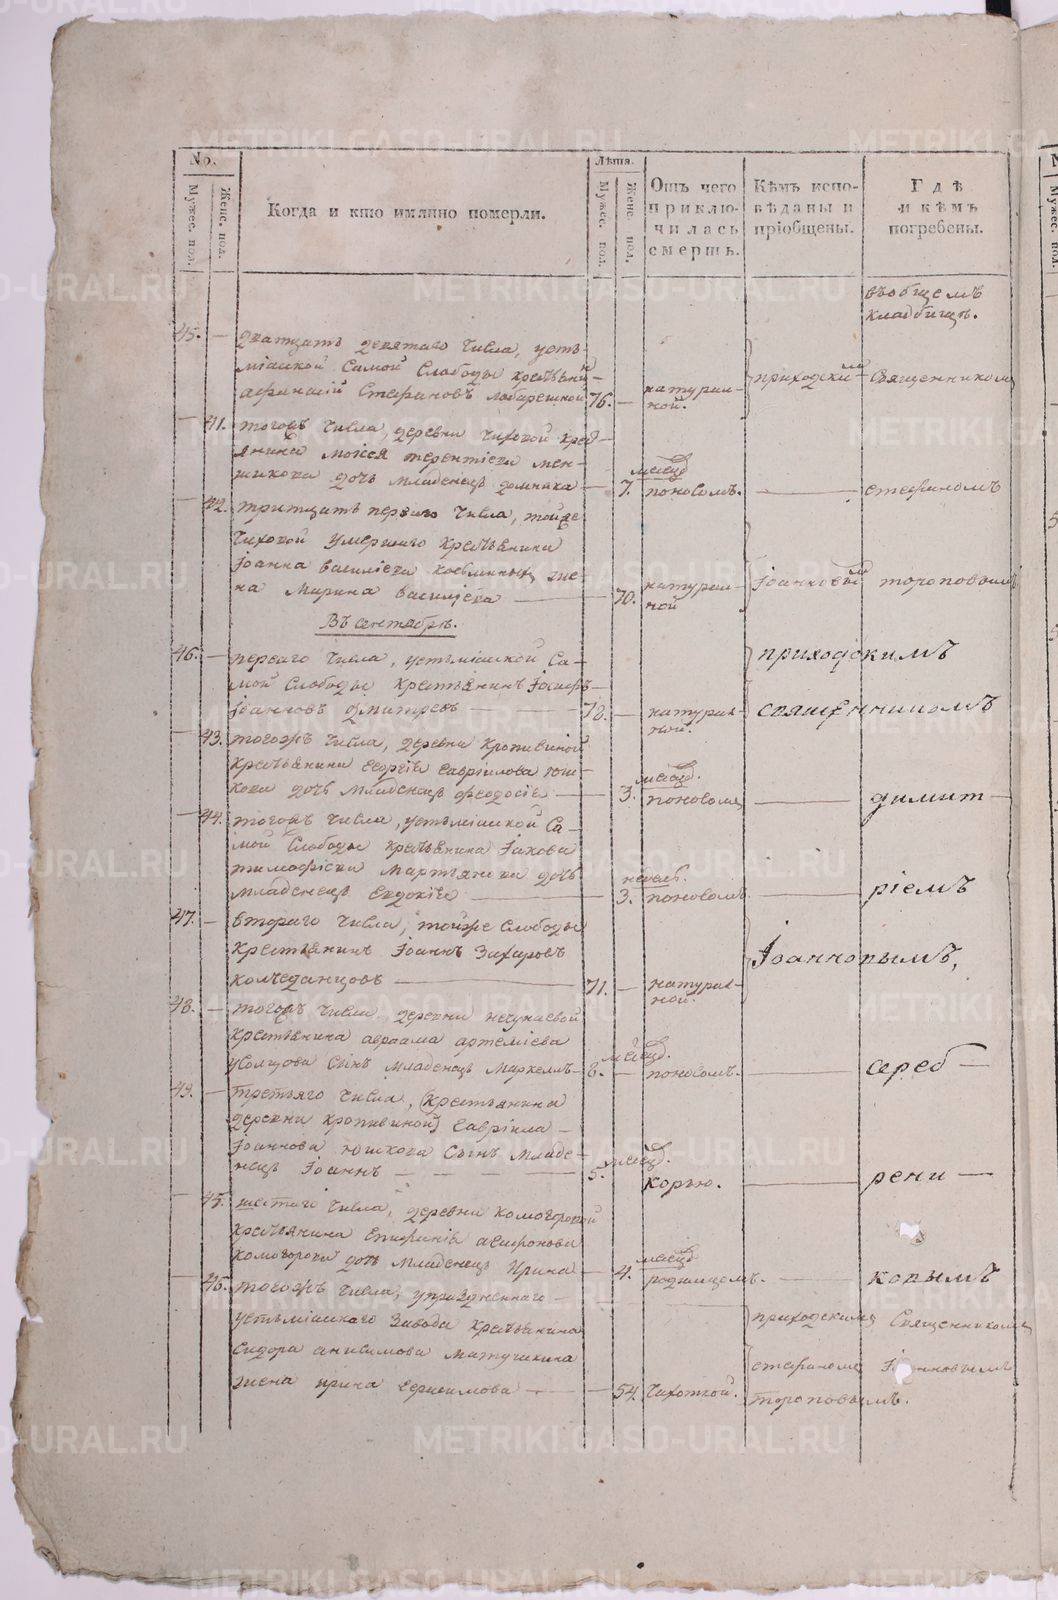 No.
Мужес. пол.
Женс. пол.
Когда и кто имянно померли.
Лѣта.
Мужес. пол.
Женс. пол.
Отъ чего
приклю-
чилась
смерть.
Кѣмъ испо-
вѣданы и
пріобщены.
Гдѣ
и кѣмъ
погребены.
въобщемъ
кладбищѣ.
45. — дватцать девятаго числа, усть-
міаской Самой Слободы крестьянинъ
афанасій Стефановъ 76. — натураль-
ной. приходскимъ Священникомъ
— 41. тогожъ числа, деревни Чиховой крес-
янина моисея терентіева мен-
шикова дочь младенецъ домника — 7. месяц. поносомъ. — стефаномъ
— 42. тритцать перваго числа, тойже
Чиховой умершаго крестьянина
Іоанна василіева жe-
на Марина васильева — 70. натураль-
ной Іоанновымъ тороповымъ
Въ сентябрѣ.
46. — перваго числа, устьміаской Са-
мой Слободы крестьянинъ Іосифъ
Іоанновъ дмитревъ — 72. — натураль-
ной. приходскимъ
священникомъ
— 43. тогожъ числа, деревни кропивиной
крестьянина георгія гавріилова юш-
кова дочь младенецъ феодосія — 3. месяц. поносомъ — димит—
— 44. тогожъ числа, устьміаской Са-
мой Слободы крестьянина Іакова
тимофіева Мартьянова дочь
младенецъ евдокія — 3. недель. поносомъ — ріемъ
47. — втораго числа, тойже Слободы
крестьянинъ Іоаннъ Захаровъ
колчеданцовъ — 71. — натураль-
ной. Іоанновымъ,
48. — тогожъ числа, деревни нечунаевой
крестьянина авраама артеміева
усолцова сынъ младенецъ Маркеллъ — 8. месяц. — поносомъ. — сереб—
49. — третьяго числа, (крестьянина
деревни кропивиной) гавріила
Іоаннова юшкова сынъ младе-
нецъ Іоаннъ — 5. месяц. корью. рени—
— 45. шестаго числа, деревни комогоровой
крестьянина Епифанія агафонова
комогорова дочь младенецъ Ирина — 4. месяц. родимцемъ. — ковымъ
— 46. тогожъ числа, упраздненнаго
устьміаскаго завода крестьянина
Сидора анисимова Матушкина
жена ирина герасимова — 54. Чахоткой. приходскимъ Священникомъ
стефаномъ Іоанновымъ
тороповымъ.